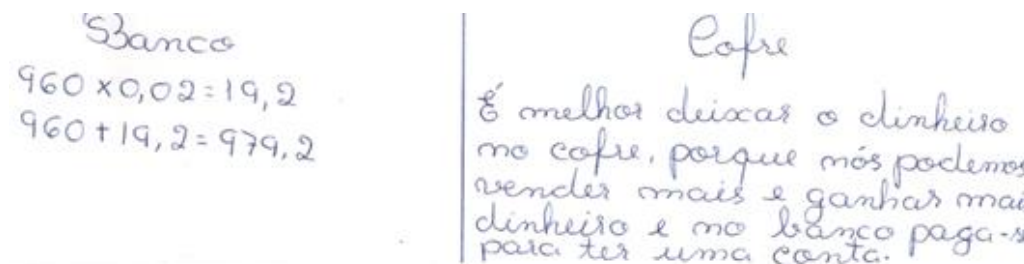 Banco
960 x 0,02 = 19,2
960 + 19,2 = 979,2
Cofre
É melhor deixar o dinheiro
no cofre, porque nós podemos
vender mais e ganhar mai
dinheiro e no banco paga-s
para ter uma conta.